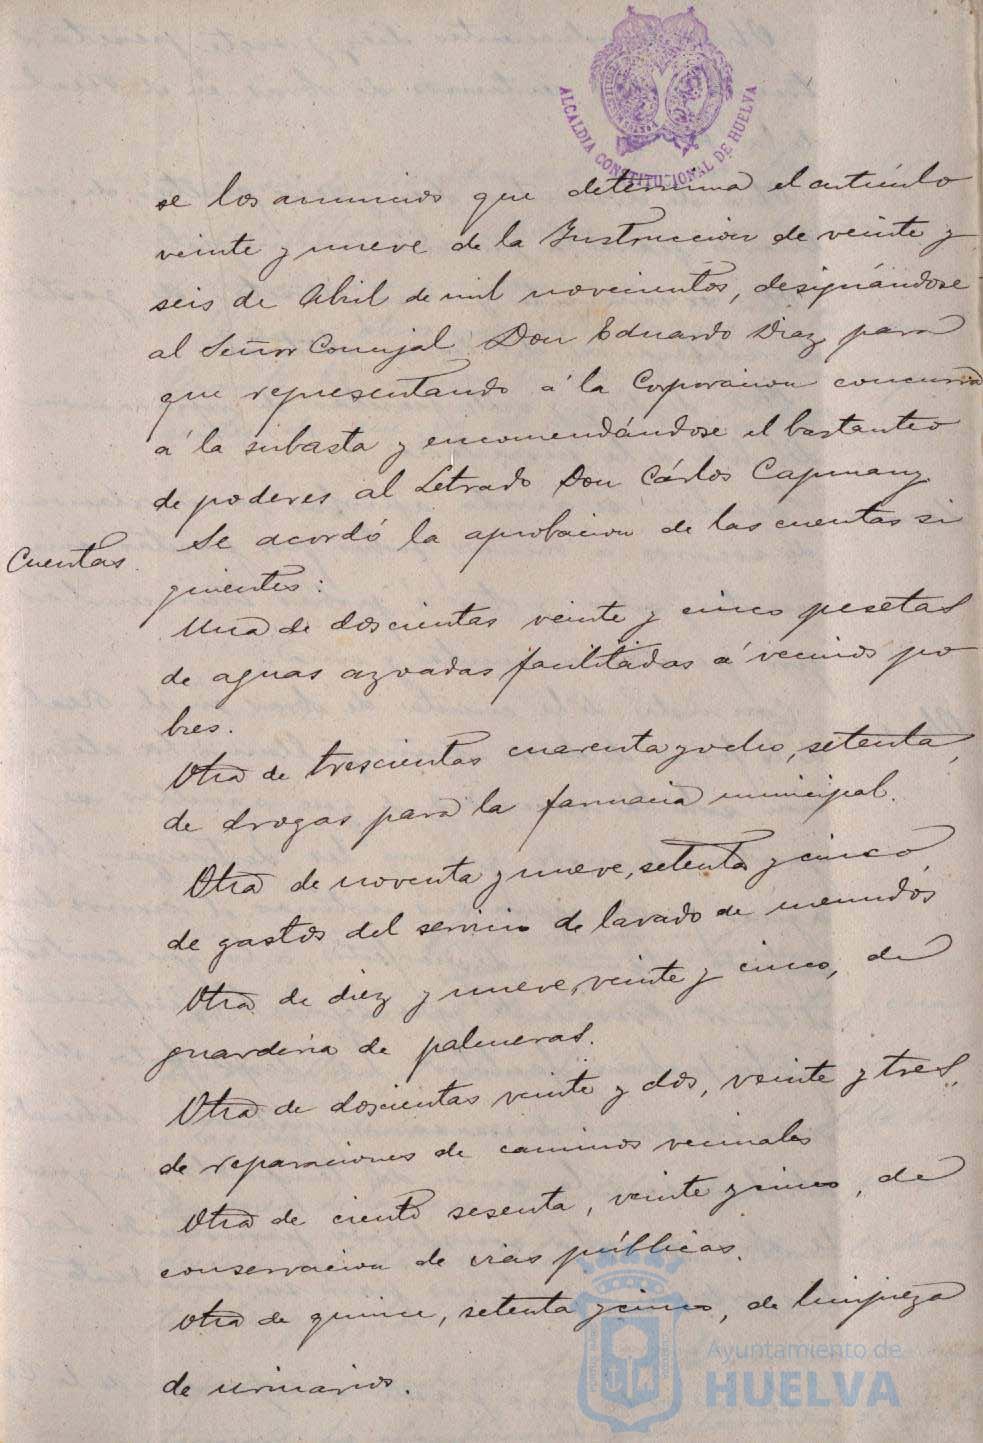 ALCALDIA CONSTITUCIONAL DE HUELVA
se los anuncios que determina el artículo
veinte y nueve de la Instruccion de veinte y
seis de Abril de mil novecientos, designándose
al Señor Concejal Don Eduardo Diaz para
que representando á la Corporacion concurra
á la subasta y encomendándose el bastanteo
de poderes al Letrado Don Cárlos Capmany.
Cuentas.
Se acordó la aprobacion de las cuentas si
guientes:
Una de doscientas veinte y cinco pesetas
de aguas azoadas facilitadas á vecinos po
bres.
Otra de trescientas cuarenta y ocho, setenta,
de drogas para la farmacia municipal.
Otra de noventa y nueve, setenta y cinco,
de gastos del servicio de lavado de menudos
Otra de diez y nueve, veinte y cinco, de
guarderia de palmeras.
Otra de doscientas veinte y dos, veinte y tres,
de reparaciones de caminos vecinales
Otra de ciento sesenta, veinte y cinco, de
conservacion de vias públicas.
Otra de quince, setenta y cinco, de limpieza
de urinarios.
Ayuntamiento de
HUELVA